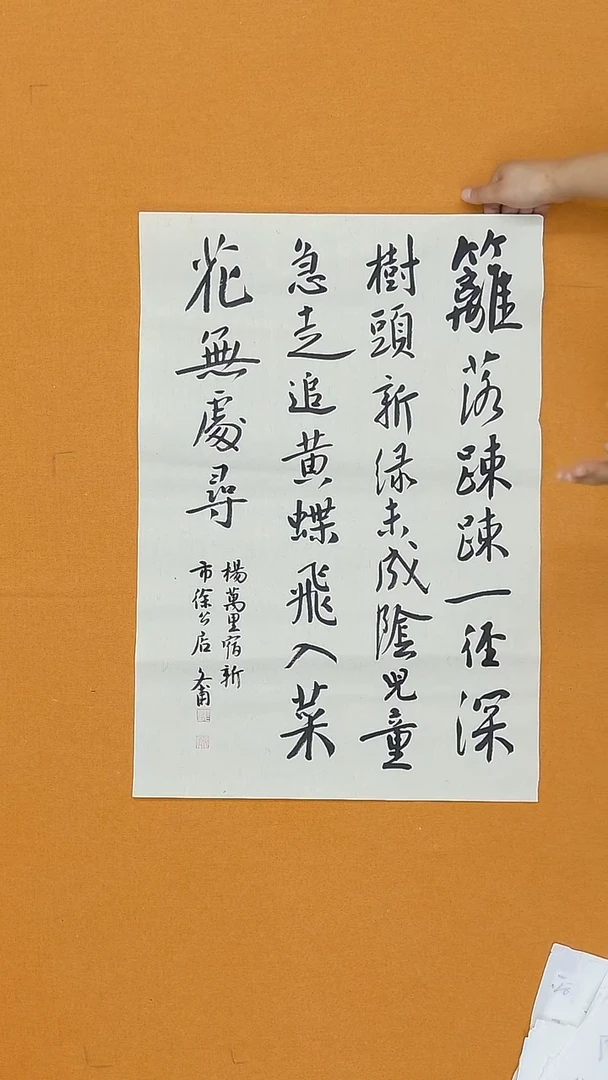 籬落踈踈一徑深
樹頭新緑未成陰兒童
急走追黄蝶飛入菜
花無處尋
楊萬里宿新
市徐公店